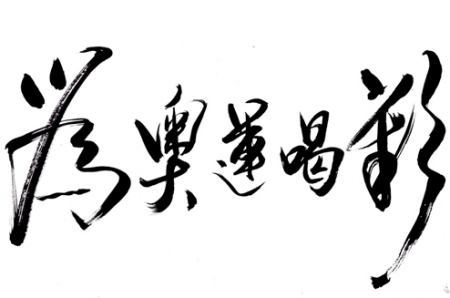 為奧運喝彩